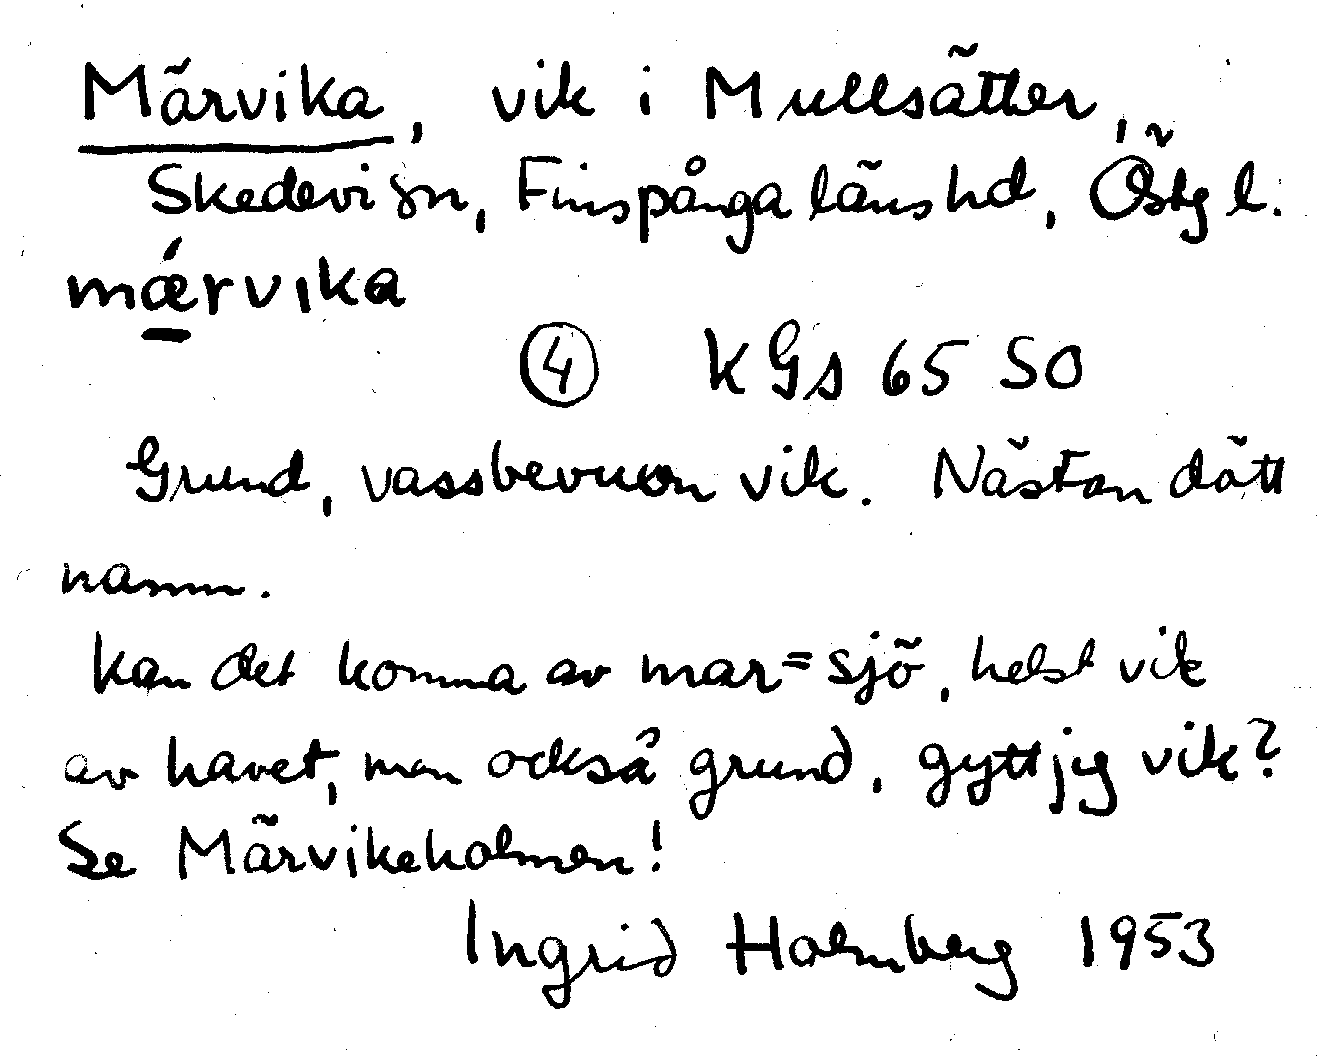 Märvika, vik i Mullsätter,
Skedevi sn, Finspånga länshd, Östg l.
mǽrvika
④ KGs 65 SO
Grund, vassbevuxen vik. Nästan dött
namn.
Kan det komma av mar = sjö, helst vik
av havet, men också grund, gyttjig vik?
Se Märvikeholmen!
Ingrid Holmberg 1953